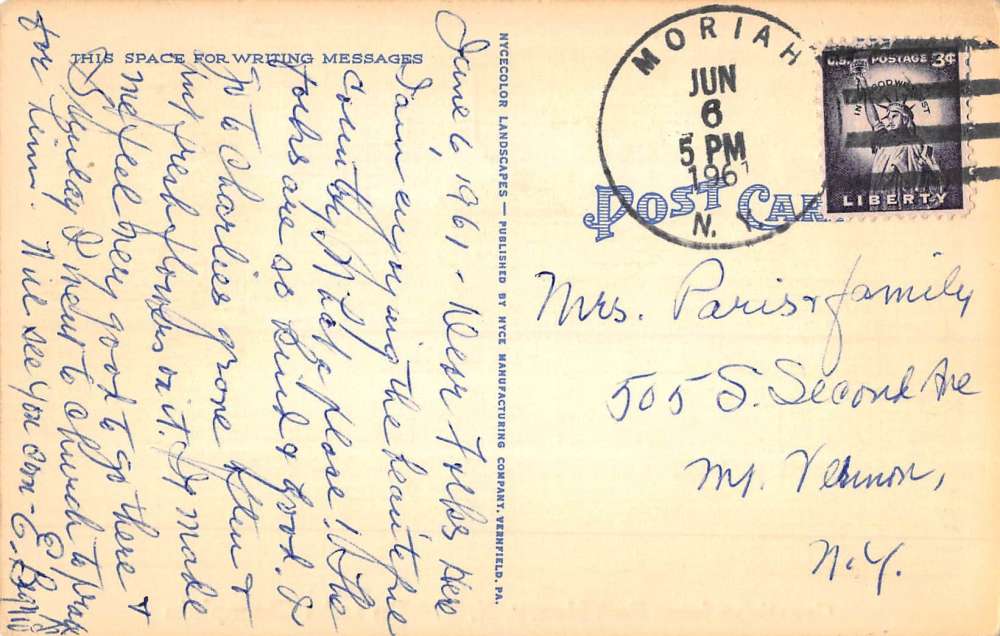 THIS SPACE FOR WRITING MESSAGES
June 6, 1961 - Dear Folks Here
I am enjoying the beautiful
country. What a place! The
folks are so kind & good. I
go to Charlies grave often &
put fresh flowers on it. It made
me feel very good to go there &
Sunday I went to church to pray
for him. I'll see you
NYCECOLOR LANDSCAPES — PUBLISHED BY NYCE MANUFACTURING COMPANY, VERNFIELD, PA.
MORIAH
JUN
6
5 PM
1961
N. Y.
U.S. POSTAGE 3¢
IN GOD WE TRUST
LIBERTY
POST CARD
Mrs. Paris & family
505 S. Second Ave
Mt. Vernon,
N.Y.